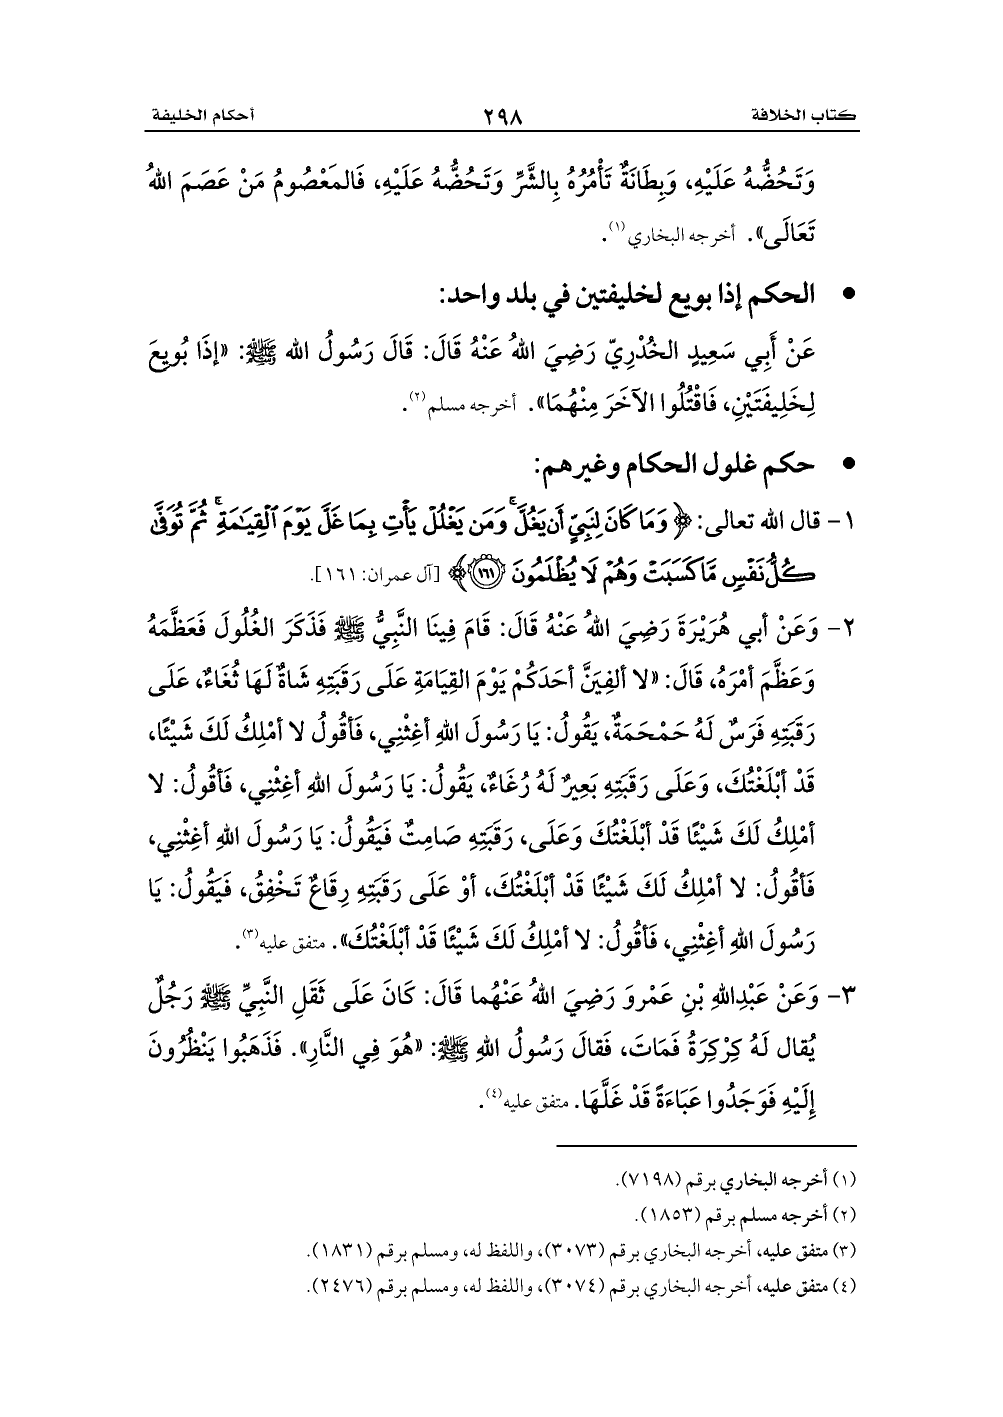 كتاب الخلافة ٢٩٨ أحكام الخليفة
وَتَحُضُّهُ عَلَيْهِ، وَبِطَانَةٌ تَأْمُرُهُ بِالشَّرِّ وَتَحُضُّهُ عَلَيْهِ، فَالمَعْصُومُ مَنْ عَصَمَ اللهُ
تَعَالَى». أخرجه البخاري(١).
● الحكم إذا بويع لخليفتين في بلد واحد:
عَنْ أَبِي سَعِيدٍ الخُدْرِيّ رَضِيَ اللهُ عَنْهُ قَالَ: قَالَ رَسُولُ الله ﷺ: «إذَا بُويِعَ
لِخَلِيفَتَيْنِ، فَاقْتُلُوا الآخَرَ مِنْهُمَا». أخرجه مسلم(٢).
● حكم غلول الحكام وغيرهم:
١- قال الله تعالى: ﴿وَمَا كَانَ لِنَبِيٍّ أَن يَغُلَّ ۚ وَمَن يَغْلُلْ يَأْتِ بِمَا غَلَّ يَوْمَ ٱلْقِيَـٰمَةِ ۚ ثُمَّ تُوَفَّىٰ
كُلُّ نَفْسٍ مَّا كَسَبَتْ وَهُمْ لَا يُظْلَمُونَ ﴿١٦١﴾﴾ [آل عمران: ١٦١].
٢- وَعَنْ أبي هُرَيْرَةَ رَضِيَ اللهُ عَنْهُ قَالَ: قَامَ فِينَا النَّبِيُّ ﷺ فَذَكَرَ الغُلُولَ فَعَظَّمَهُ
وَعَظَّمَ أمْرَهُ، قَالَ: «لا ألفِيَنَّ أحَدَكُمْ يَوْمَ القِيَامَةِ عَلَى رَقَبَتِهِ شَاةٌ لَهَا ثُغَاءٌ، عَلَى
رَقَبَتِهِ فَرَسٌ لَهُ حَمْحَمَةٌ، يَقُولُ: يَا رَسُولَ اللهِ أغِثْنِي، فَأقُولُ لا أمْلِكُ لَكَ شَيْئًا،
قَدْ أبْلَغْتُكَ، وَعَلَى رَقَبَتِهِ بَعِيرٌ لَهُ رُغَاءٌ، يَقُولُ: يَا رَسُولَ اللهِ أغِثْنِي، فَأقُولُ: لا
أمْلِكُ لَكَ شَيْئًا قَدْ أبْلَغْتُكَ وَعَلَى، رَقَبَتِهِ صَامِتٌ فَيَقُولُ: يَا رَسُولَ اللهِ أغِثْنِي،
فَأقُولُ: لا أمْلِكُ لَكَ شَيْئًا قَدْ أبْلَغْتُكَ، أوْ عَلَى رَقَبَتِهِ رِقَاعٌ تَخْفِقُ، فَيَقُولُ: يَا
رَسُولَ اللهِ أغِثْنِي، فَأقُولُ: لا أمْلِكُ لَكَ شَيْئًا قَدْ أبْلَغْتُكَ». متفق عليه(٣).
٣- وَعَنْ عَبْدِاللهِ بْنِ عَمْروَ رَضِيَ اللهُ عَنْهُما قَالَ: كَانَ عَلَى ثَقَلِ النَّبِيِّ ﷺ رَجُلٌ
يُقال لَهُ كِرْكِرَةُ فَمَاتَ، فَقالَ رَسُولُ اللهِ ﷺ: «هُوَ فِي النَّارِ». فَذَهَبُوا يَنْظُرُونَ
إلَيْهِ فَوَجَدُوا عَبَاءَةً قَدْ غَلَّهَا. متفق عليه(٤).
(١) أخرجه البخاري برقم (٧١٩٨).
(٢) أخرجه مسلم برقم (١٨٥٣).
(٣) متفق عليه، أخرجه البخاري برقم (٣٠٧٣)، واللفظ له، ومسلم برقم (١٨٣١).
(٤) متفق عليه، أخرجه البخاري برقم (٣٠٧٤)، واللفظ له، ومسلم برقم (٢٤٧٦).